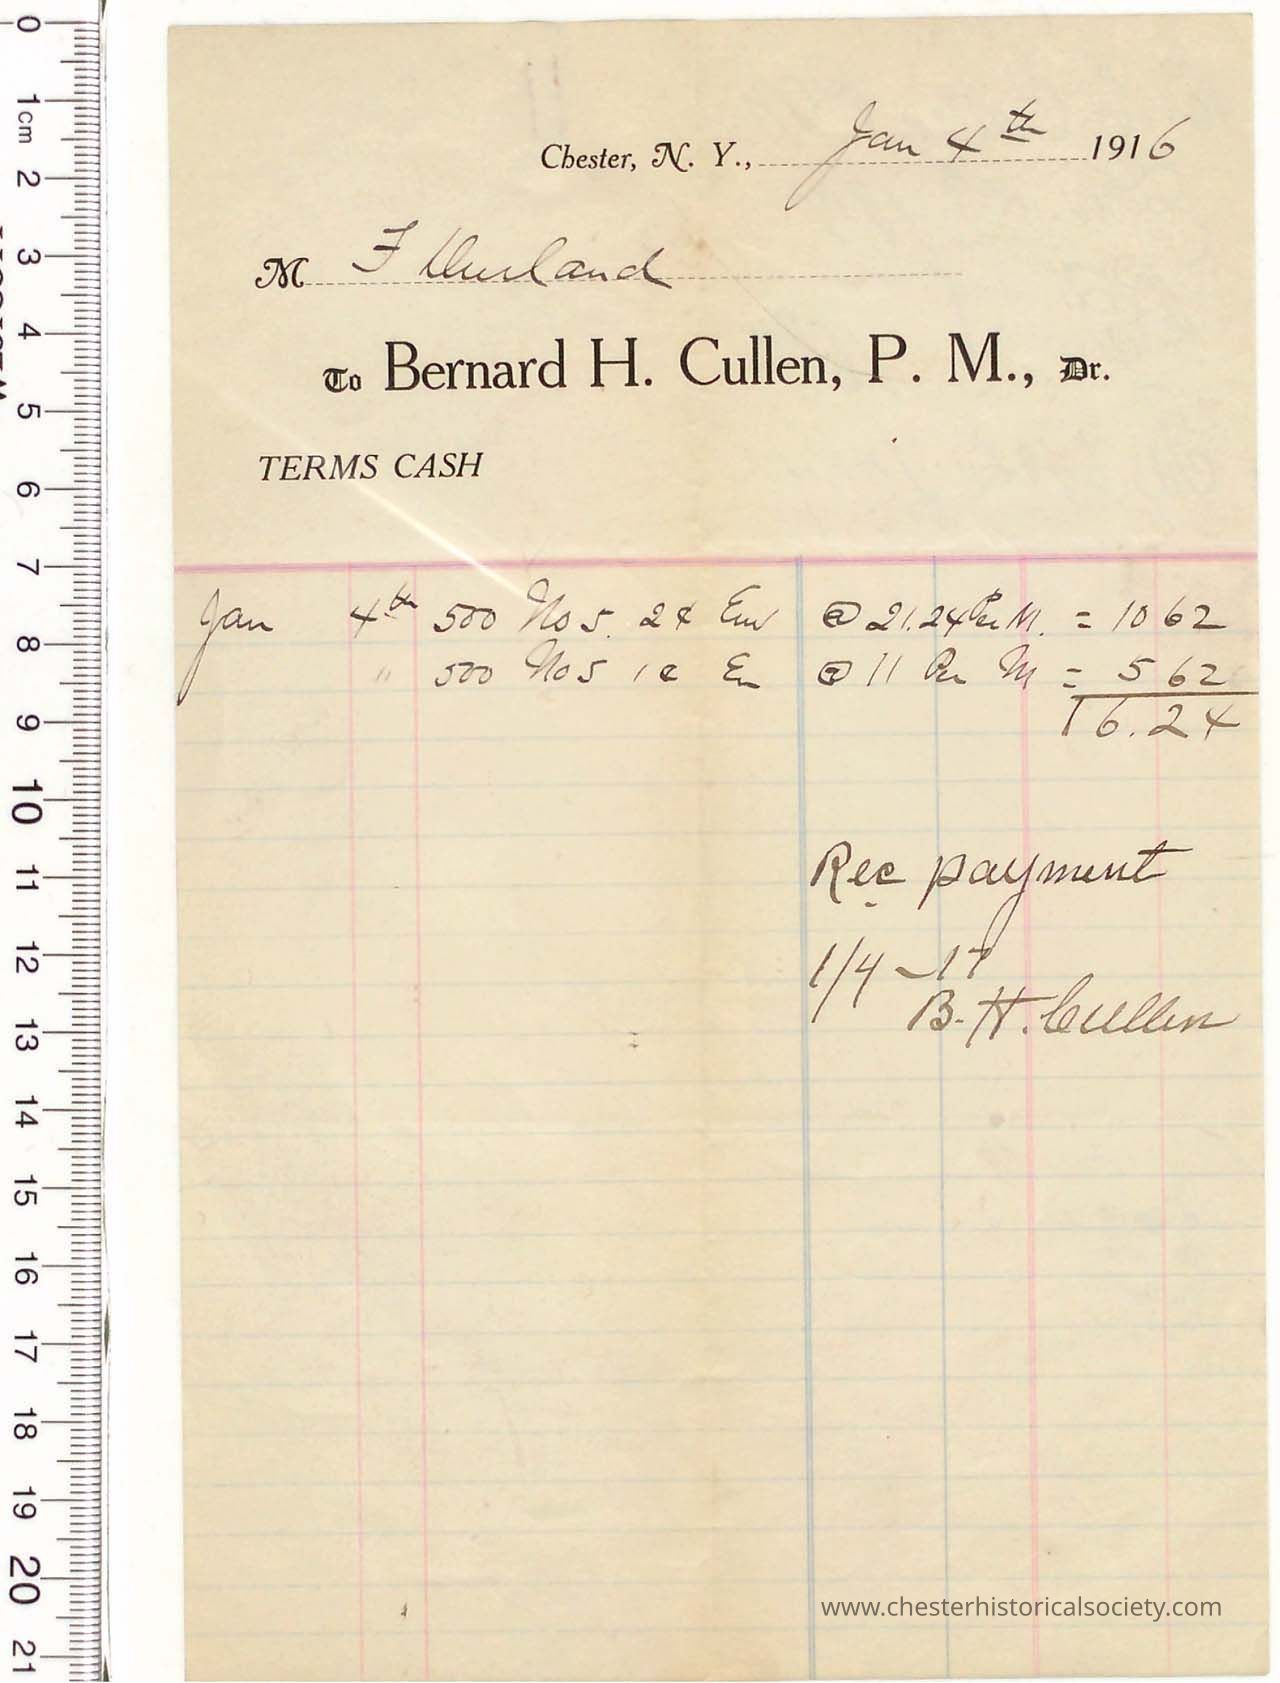 Chester, N. Y., Jan 4th 1916
M F Durland
To Bernard H. Cullen, P. M., Dr.
TERMS CASH
Jan 4th 500 No 5. 2¢ Env @ 21.24 Per M. = 10 62
" 500 No 5 1¢ En @ 11 Per M = 5 62
16.24
Rec payment
1/4 - 17
B. H. Cullen
www.chesterhistoricalsociety.com
0
1cm
2
3
4
5
6
7
8
9
10
11
12
13
14
15
16
17
18
19
20
21